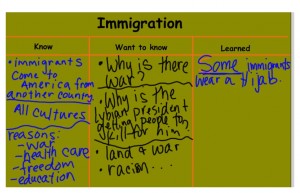 Immigration
Know
Want to know
Learned
• immigrants
come to
America from
another country.
All cultures
reasons:
- war
- health care
- freedom
- education
• Why is there
war?
• Why is the
lybian president
getting people to
kill for him
• land & war
• racism...
Some immigrants
wear a Hijab.